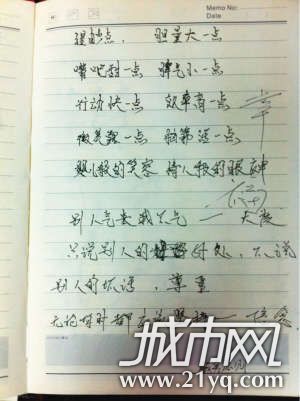 Memo No:
Date
理智点, 胆量大一点
嘴吧甜一点 脾气小一点
行动快一点 效率高一点
微笑露一点 脑筋活一点
婴儿般的笑容 情人般的眼神
别人气我我不气 — 大度
只说别人的好处, 不说
别人的坏话, 尊重
无论何时都
城市网
www.21yq.com